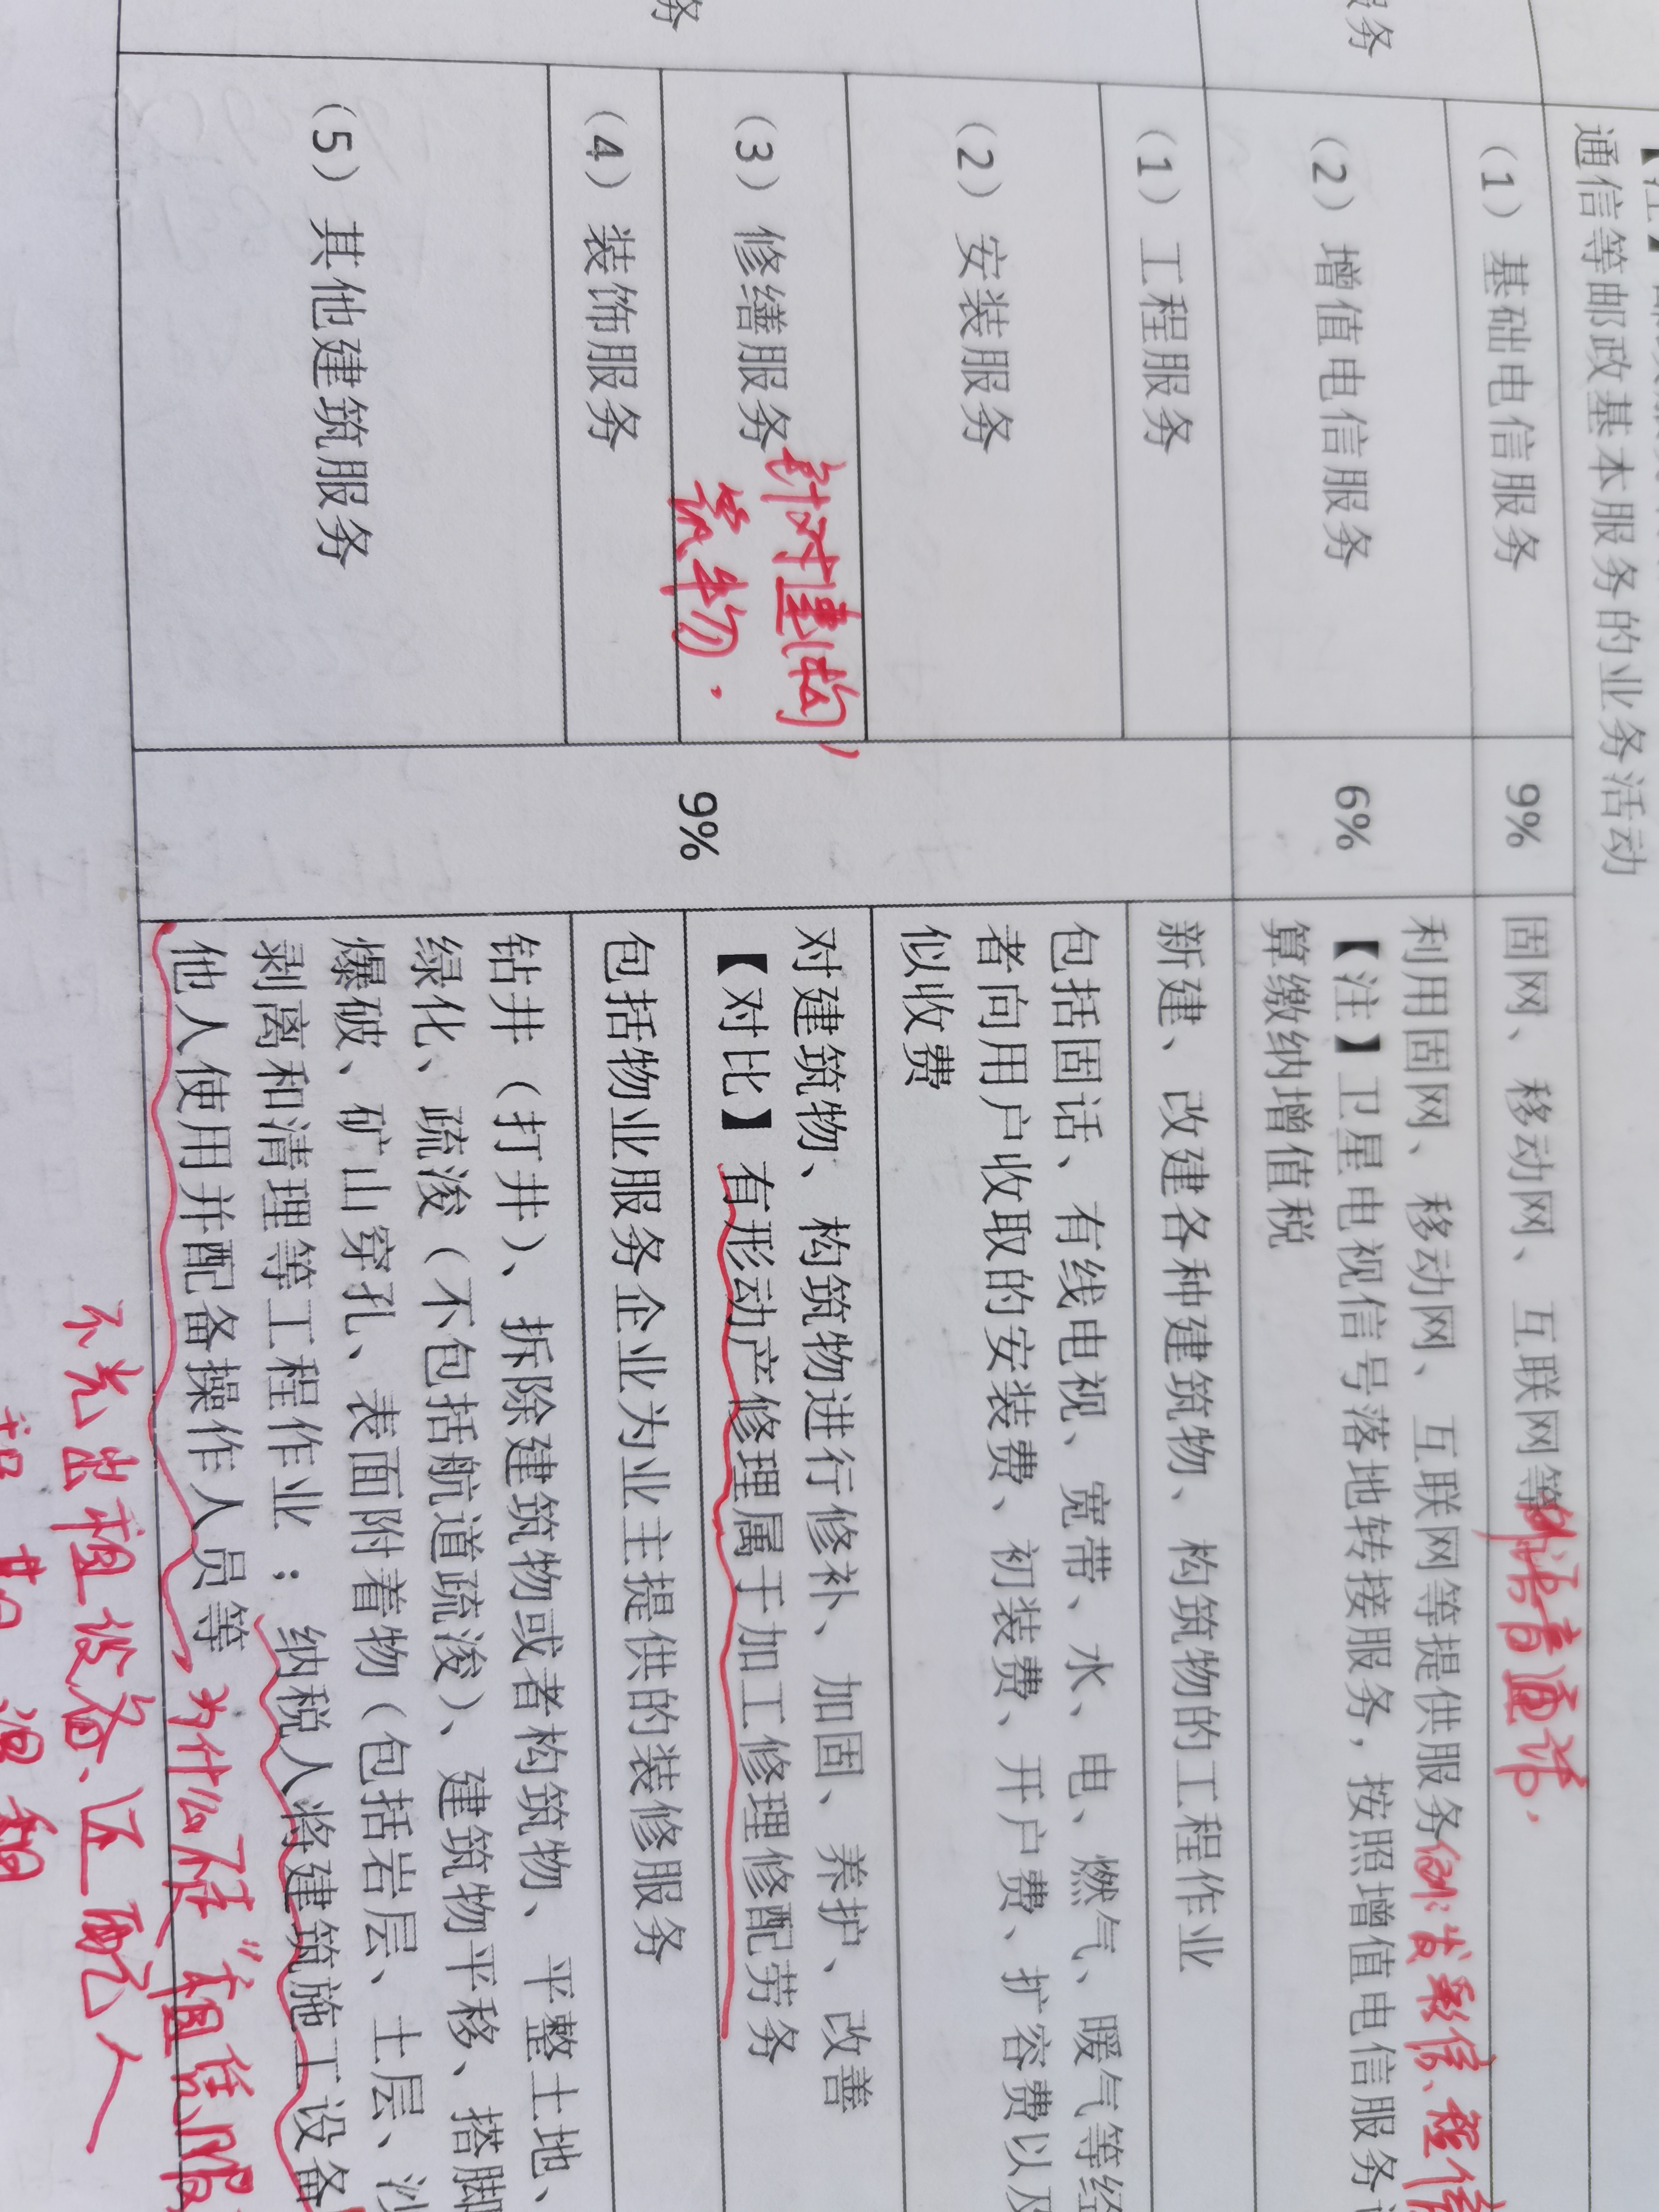 通信等邮政基本服务的业务活动
(1) 基础电信服务
9%
固网、移动网、互联网等
例语音通话.
务
(2) 增值电信服务
6%
利用固网、移动网、互联网等提供服务
例:发彩信、短信
【注】卫星电视信号落地转接服务，按照增值电信服务
算缴纳增值税
(1) 工程服务
新建、改建各种建筑物、构筑物的工程作业
(2) 安装服务
包括固话、有线电视、宽带、水、电、燃气、暖气等经
者向用户收取的安装费、初装费、开户费、扩容费以及
似收费
务
(3) 修缮服务
针对建构
筑物.
9%
对建筑物、构筑物进行修补、加固、养护、改善
【对比】有形动产修理属于加工修理修配劳务
(4) 装饰服务
包括物业服务企业为业主提供的装修服务
(5) 其他建筑服务
钻井（打井）、拆除建筑物或者构筑物、平整土地、
绿化、疏浚（不包括航道疏浚）、建筑物平移、搭脚
爆破、矿山穿孔、表面附着物（包括岩层、土层、沙
剥离和清理等工程作业；纳税人将建筑施工设备
他人使用并配备操作人员等
为什么不是“租赁服
不光出租设备、还配人